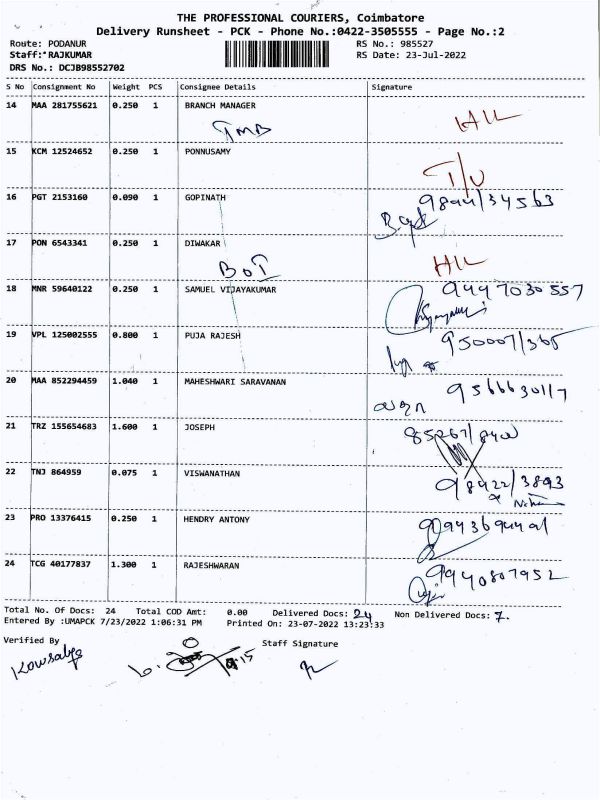 THE PROFESSIONAL COURIERS, Coimbatore
Delivery Runsheet - PCK - Phone No.:0422-3505555 - Page No.:2
Route: PODANUR RS No.: 985527
Staff:*RAJKUMAR RS Date: 23-Jul-2022
DRS No.: DCJB98552702
S No Consignment No Weight PCS Consignee Details Signature
14 MAA 281755621 0.250 1 BRANCH MANAGER
TMB
15 KCM 12524652 0.250 1 PONNUSAMY
16 PGT 2153160 0.090 1 GOPINATH
17 PON 6543341 0.250 1 DIWAKAR
BOI
18 MNR 59640122 0.250 1 SAMUEL VIJAYAKUMAR 9447030557
19 VPL 125002555 0.800 1 PUJA RAJESH
20 MAA 852294459 1.040 1 MAHESHWARI SARAVANAN
21 TRZ 155654683 1.600 1 JOSEPH
22 TNJ 864959 0.075 1 VISWANATHAN
23 PRO 13376415 0.250 1 HENDRY ANTONY
24 TCG 40177837 1.300 1 RAJESHWARAN 9940807952
Total No. Of Docs: 24 Total COD Amt: 0.00 Delivered Docs: 24 Non Delivered Docs: 7.
Entered By :UMAPCK 7/23/2022 1:06:31 PM Printed On: 23-07-2022 13:23:33
Verified By Staff Signature